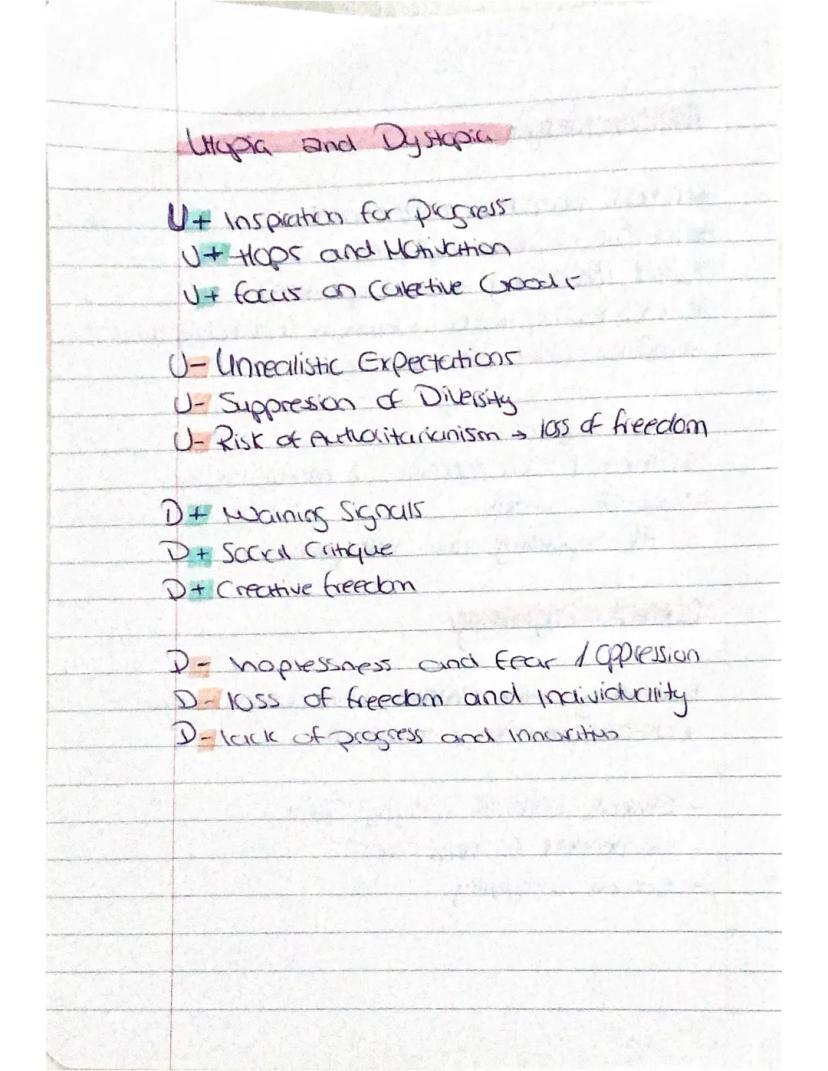 Utopia and Dystopia
U+ Inspiration for Progress
U+ Hope and Motivation
U+ focus on Collective Goods
U- Unrealistic Expectations
U- Suppression of Diversity
U- Risk of Authoritarianism → loss of freedom
D+ Warning Signals
D+ Social Critique
D+ Creative freedom
D- hoplessness and fear / oppression
D- loss of freedom and individuality
D- lack of progress and innovation